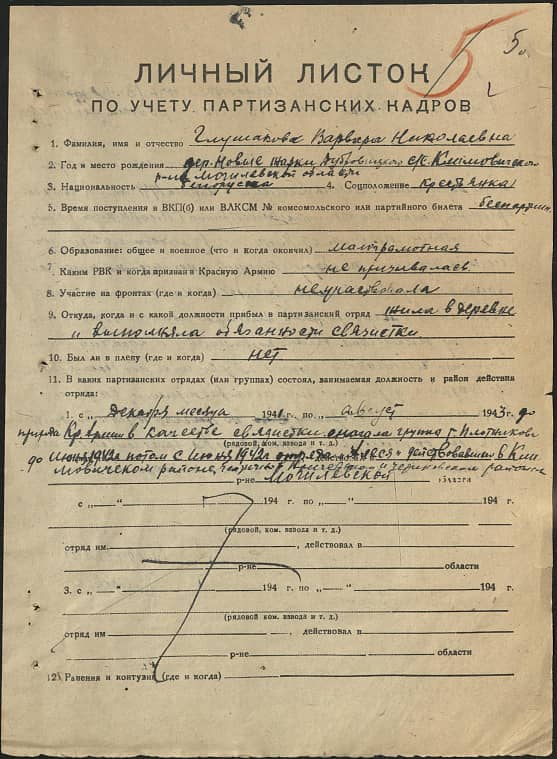 5 5
ЛИЧНЫЙ ЛИСТОК
ПО УЧЕТУ ПАРТИЗАНСКИХ КАДРОВ
1. Фамилия, имя и отчество Глушакова Варвара Николаевна
2. Год и место рождения дер. Новые с/с. Климовичского
р-на Могилевской области
3. Национальность белоруска 4. Соцположение крестьянка
5. Время поступления в ВКП(б) или ВЛКСМ № комсомольского или партийного билета беспартийн
6. Образование: общее и военное (что и когда окончил) малограмотная
7. Каким РВК и когда призван в Красную Армию не призывалась
8. Участие на фронтах (где и когда) не участвовала
9. Откуда, когда и с какой должности прибыл в партизанский отряд жила в деревне
и выполняла обязанности связистки
10. Был ли в плену (где и когда) нет
11. В каких партизанских отрядах (или группах) состоял, занимаемая должность и район действия
отряда:
1. с „ декабря месяца 194 г. по „ август 1943 г. до
прихода Кр. Армии в качестве связистки сначала группа т. Плотникова
(рядовой, ком. взвода и т. д.)
до июня 1942 а потом с июня 1942 отряда действовавший в Кли
мовичском районе, и Чериковском районах
р-не Могилевской области
с „—“ 194 г. по „—“ 194 г.
(рядовой, ком. взвода и т. д.)
отряд им. , действовал в
р-не области
3. с „—“ 194 г. по „—“ 194 г.
(рядовой, ком. взвода и т. д.)
отряд им , действовал в
р-не области
12. Ранения и контузии (где и когда)